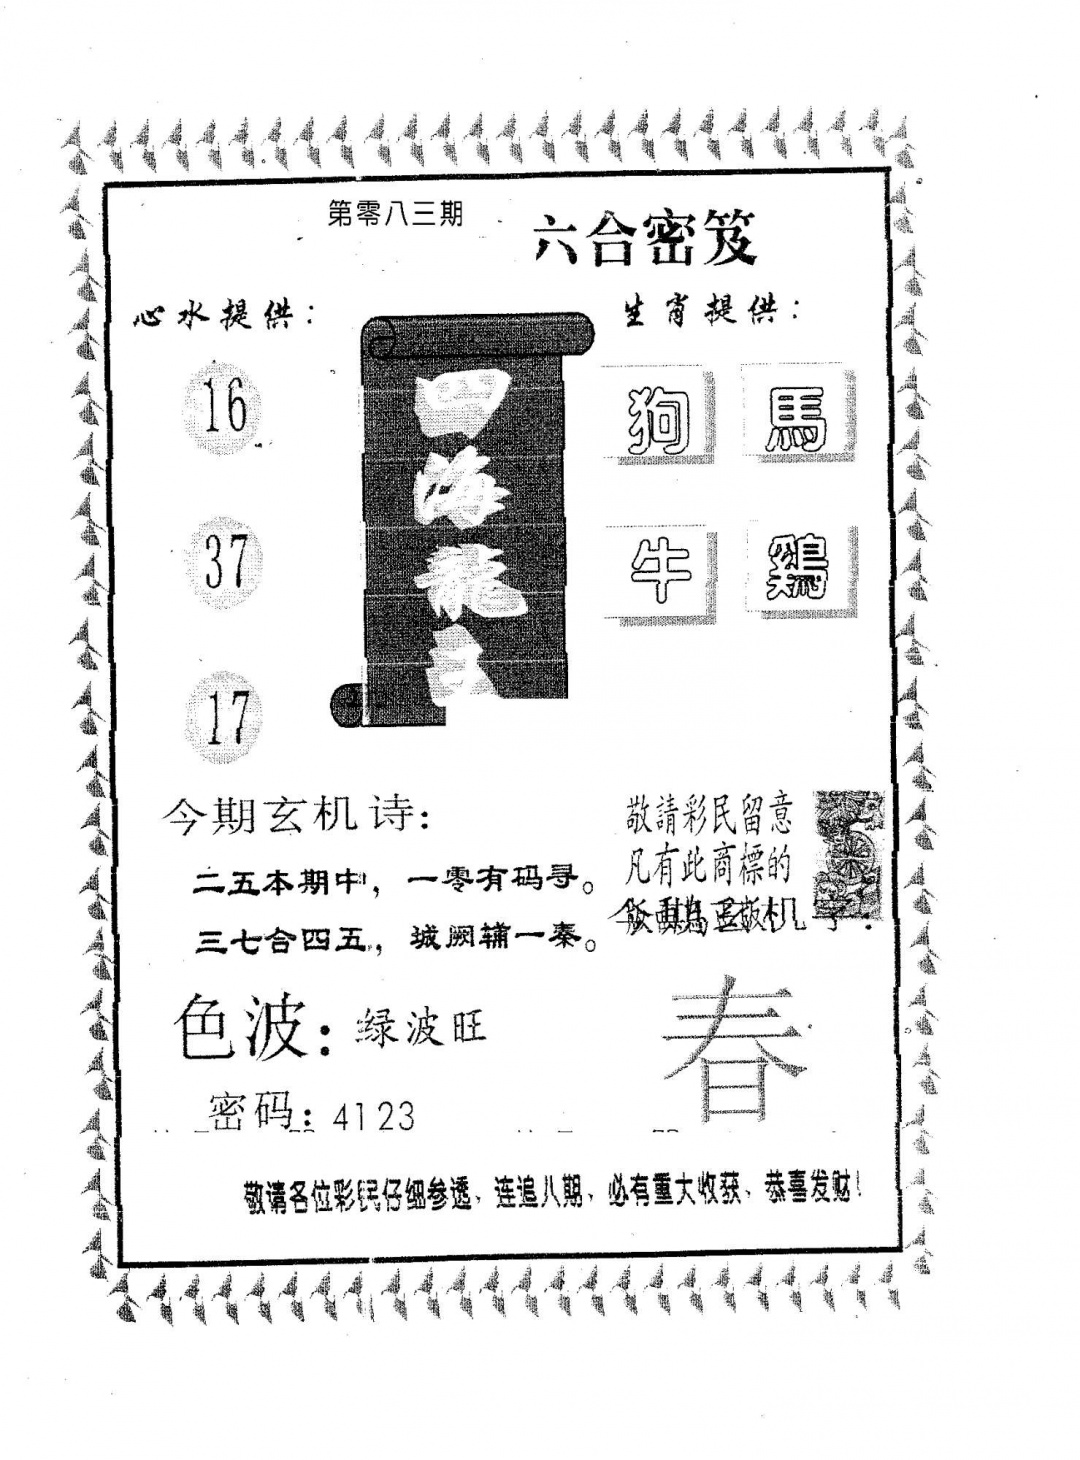 第零八三期
六合密笈
心水提供：
生肖提供：
16
37
17
四海龍王
狗 馬
牛 鷄
今期玄机诗:
二五本期中，一零有码寻。
三七合四五，城阙辅一秦。
敬請彩民留意
凡有此商標的
色波：绿波旺
春
密码: 4123
敬请各位彩民仔细参透、连追八期、必有重大收获、恭喜发财！